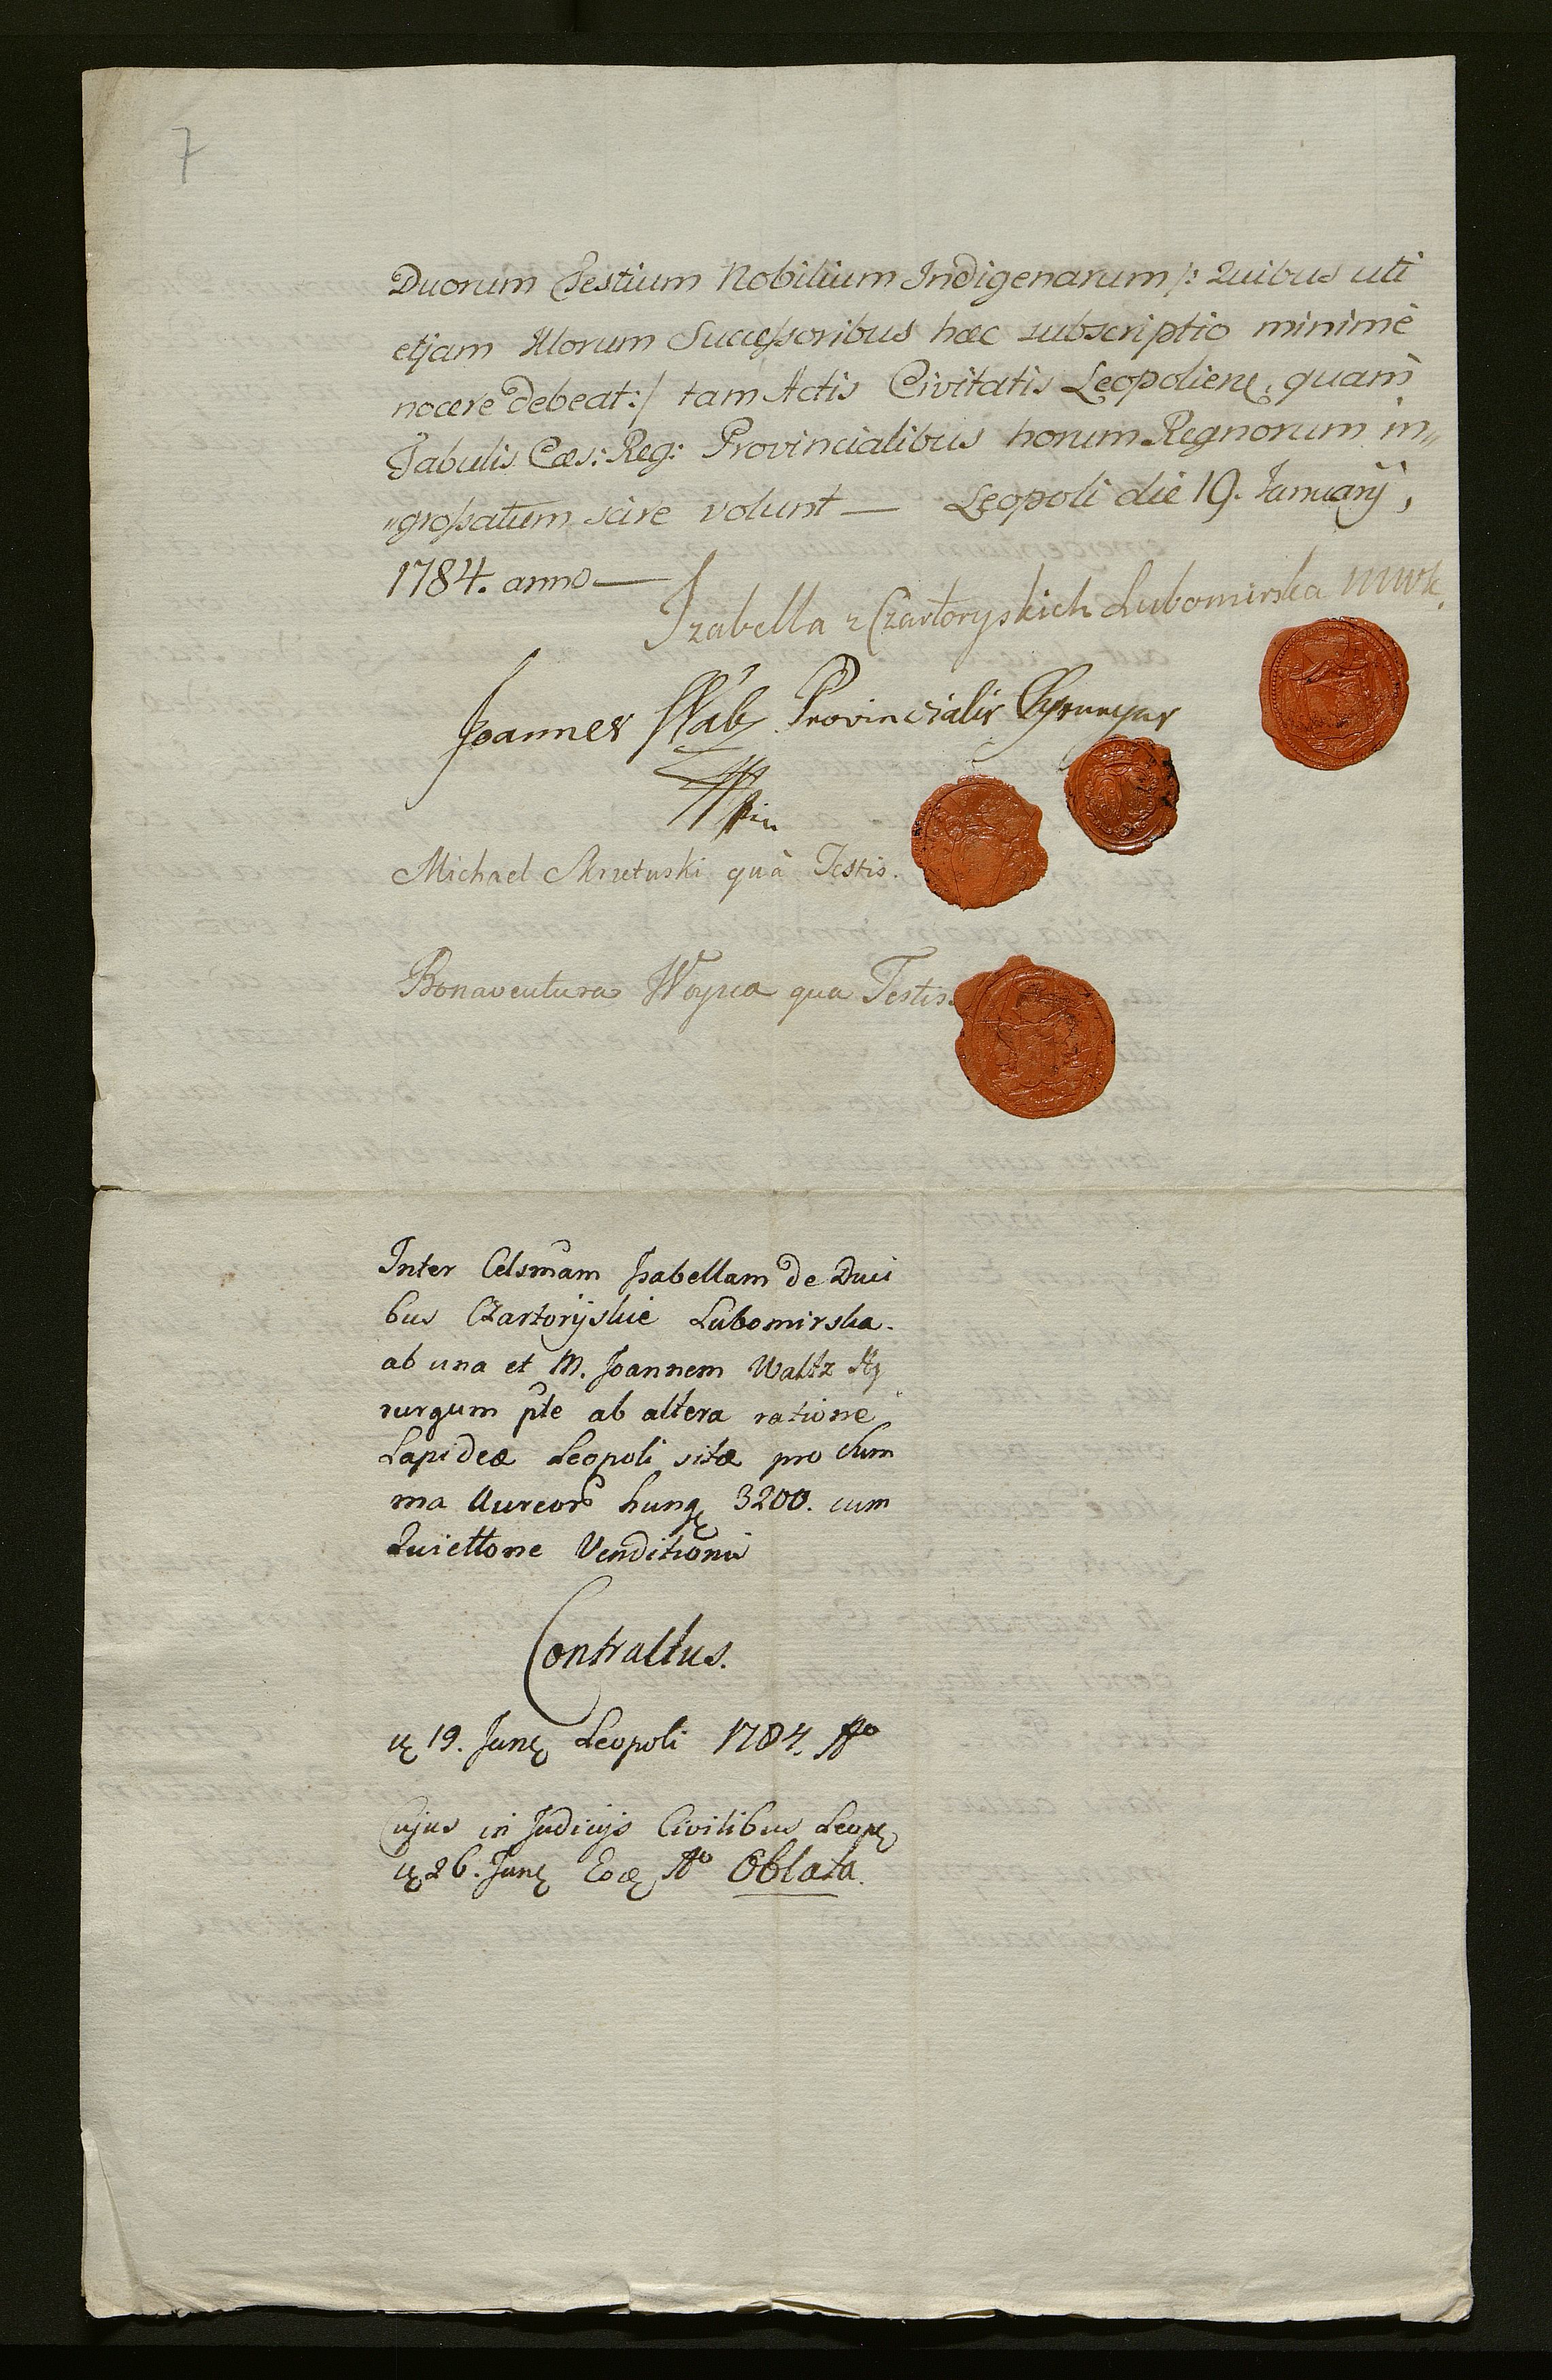 7
Duorum Testium Nobilium Indigenarum /: Quibus uti
etjam Illorum Successoribus hæc subscriptio minimè
nocere debeat :/ tam Actis Civitatis Leopoliens, quam
Tabulis Cæs: Reg: Provincialibus horum Regnorum in„
„grossatum scire volunt — Leopoli die 19. January,
1784. anno —
Izabella z Czartoryskich Lubomirska mwk.
Joannes Walz Provincialis
Michael Skrzetuski quà Testis.
Bonaventura Woyna qua Testis.
Inter Celsmam Isabellam de Duci
bus Czartoryskie Lubomirska.
ab una et M. Joannem Waltz Hy
rurgum pte ab altera ratione
Lapideæ Leopoli sitæ pro Sum
ma Aureor hung 3200. cum
Quiettone Venditionis
Contractus.
19. Leopoli 1784. Ao
Cujus in Judicijs Civilibus Leop
26. Ao Oblata.